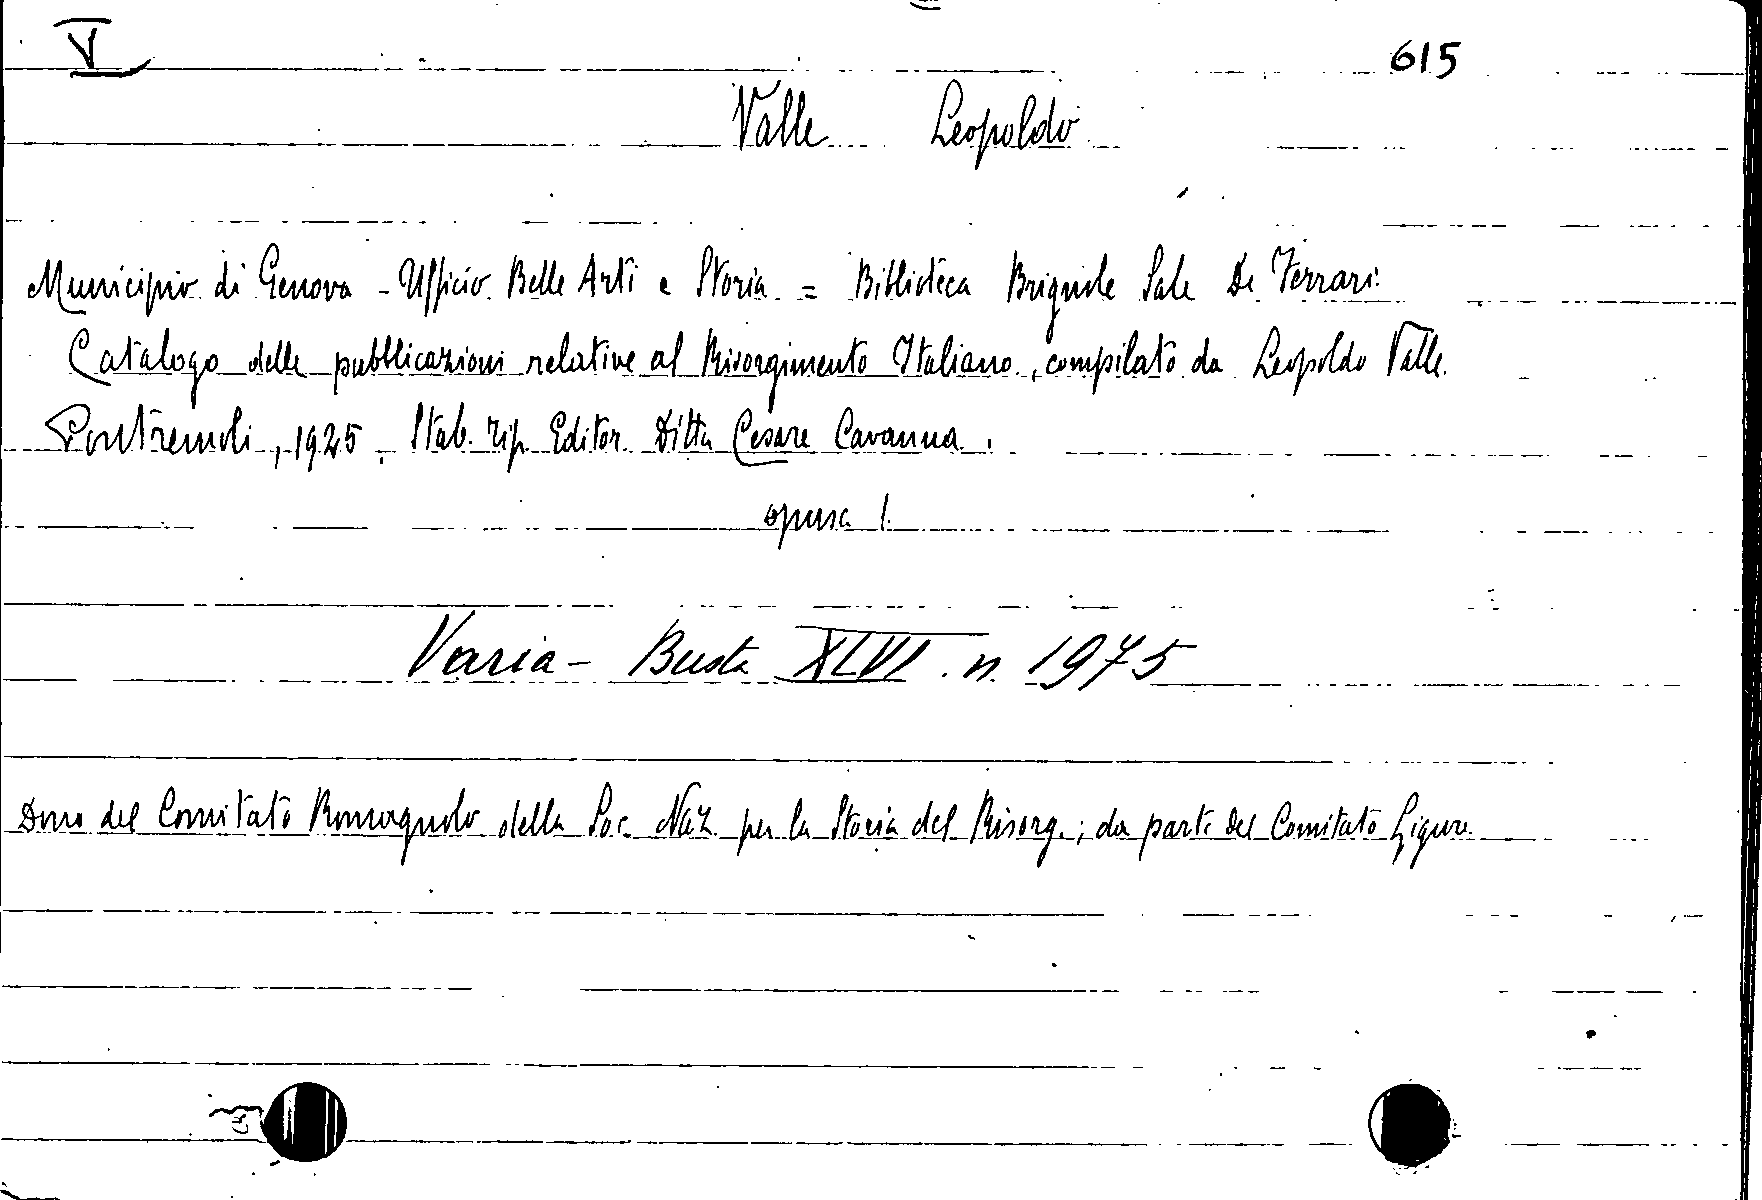 V 615
Valle Leopoldo
Municipio di Genova - Ufficio Belle Arti e Storia = Biblioteca Brignole Sale De Ferrari.
Catalogo delle pubblicazioni relative al Risorgimento Italiano, compilato da Leopoldo Valle.
Pontremoli, 1925. Stab. Tip. Editor. Ditta Cesare Cavanna.
opusc 1.
Varia - Busta XLVI. n. 1975
Dono del Comitato Romagnolo della Soc. Naz. per la Storia del Risorg.; da parte del Comitato Ligure